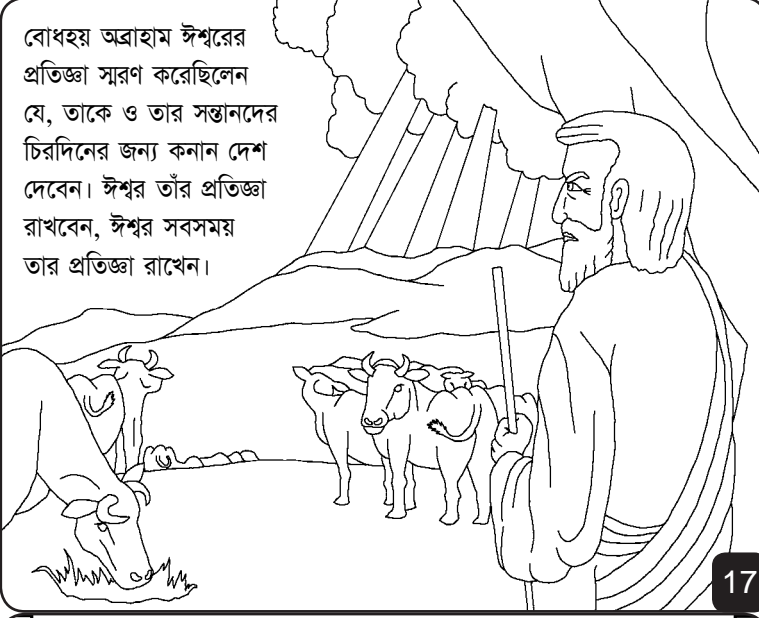 বোধহয় অব্রাহাম ঈশ্বরের
প্রতিজ্ঞা স্মরণ করেছিলেন
যে, তাকে ও তার সন্তানদের
চিরদিনের জন্য কনান দেশ
দেবেন। ঈশ্বর তাঁর প্রতিজ্ঞা
রাখবেন, ঈশ্বর সবসময়
তার প্রতিজ্ঞা রাখেন।
17